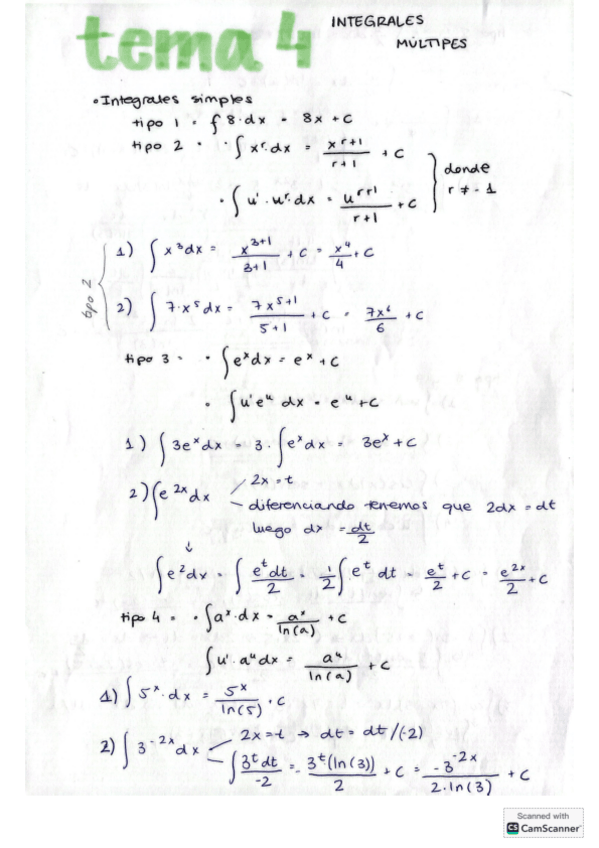 tema 4
INTEGRALES
MÚLTIPES
• Integrales simples
tipo 1 = ∫ 8·dx = 8x + C
tipo 2 • ∫ x^r·dx = x^(r+1)/(r+1) + C
• ∫ u'·u^r·dx = u^(r+1)/(r+1) + C } donde r ≠ -1
tipo 2 {
1) ∫ x^3 dx = x^(3+1)/(3+1) + C = x^4/4 + C
2) ∫ 7·x^5 dx = 7x^(5+1)/(5+1) + C = 7x^6/6 + C
tipo 3 = • ∫ e^x dx = e^x + C
• ∫ u'e^u dx = e^u + C
1) ∫ 3e^x dx = 3·∫ e^x dx = 3e^x + C
2) ∫ e^(2x) dx
2x = t
diferenciando tenemos que 2dx = dt
luego dx = dt/2
↓
∫ e^2 dx = ∫ e^t dt/2 = 1/2 ∫ e^t dt = e^t/2 + C = e^(2x)/2 + C
tipo 4 = • ∫ a^x·dx = a^x/ln(a) + C
∫ u'·a^u dx = a^u/ln(a) + C
1) ∫ 5^x·dx = 5^x/ln(5) + C
2) ∫ 3^(-2x) dx
2x = t → dt = dt/(-2)
∫ 3^t dt/-2 = 3^t(ln(3))/2 + C = -3^(-2x)/2·ln(3) + C
Scanned with
CS CamScanner